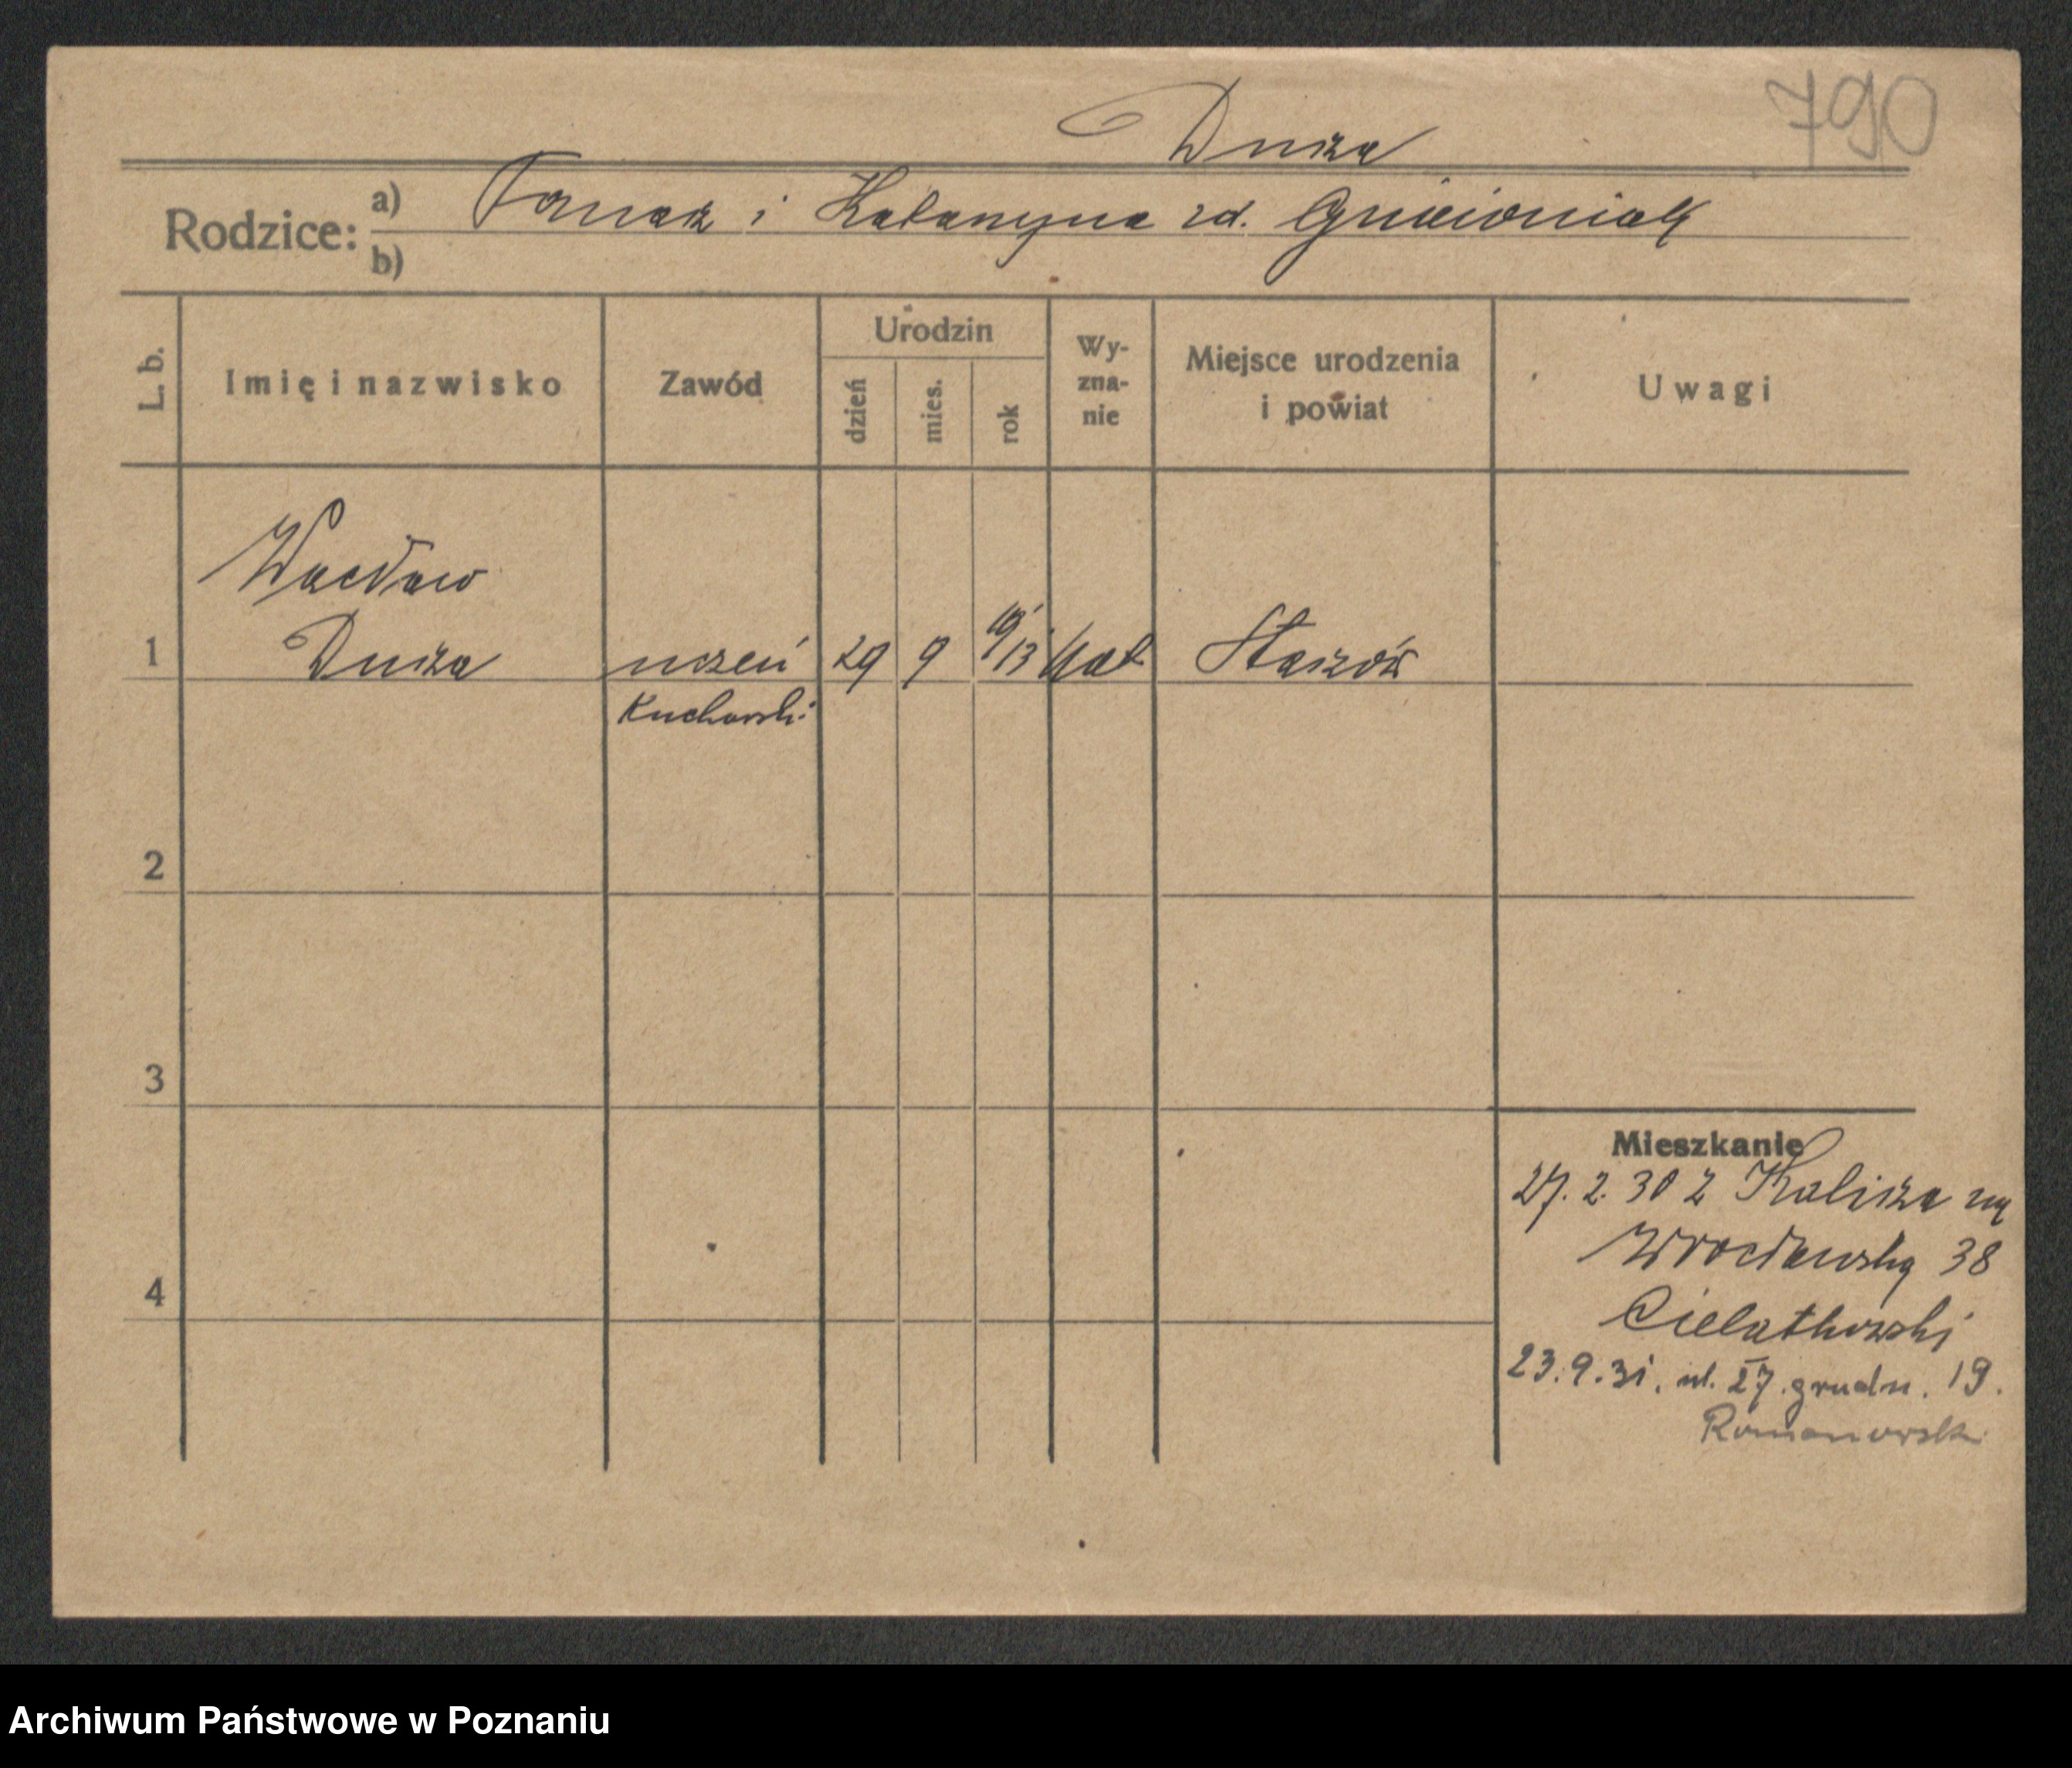 790
Dusza
Rodzice: a) Tomasz i Katarzyna zd.
b)
L. b.
Imię i nazwisko
Zawód
Urodzin
dzień
mies.
rok
Wy-
zna-
nie
Miejsce urodzenia
i powiat
Uwagi
Wacław
1 Dusza uczeń 29 9 19/13 kat Staszów
Kucharski
2
3
4
Mieszkanie
27. 2. 30 z Kalisza na
Wrocławską 38
Cielatkowski
23. 9. 31. ul. 27. grudn. 19.
Romanowski
Archiwum Państwowe w Poznaniu